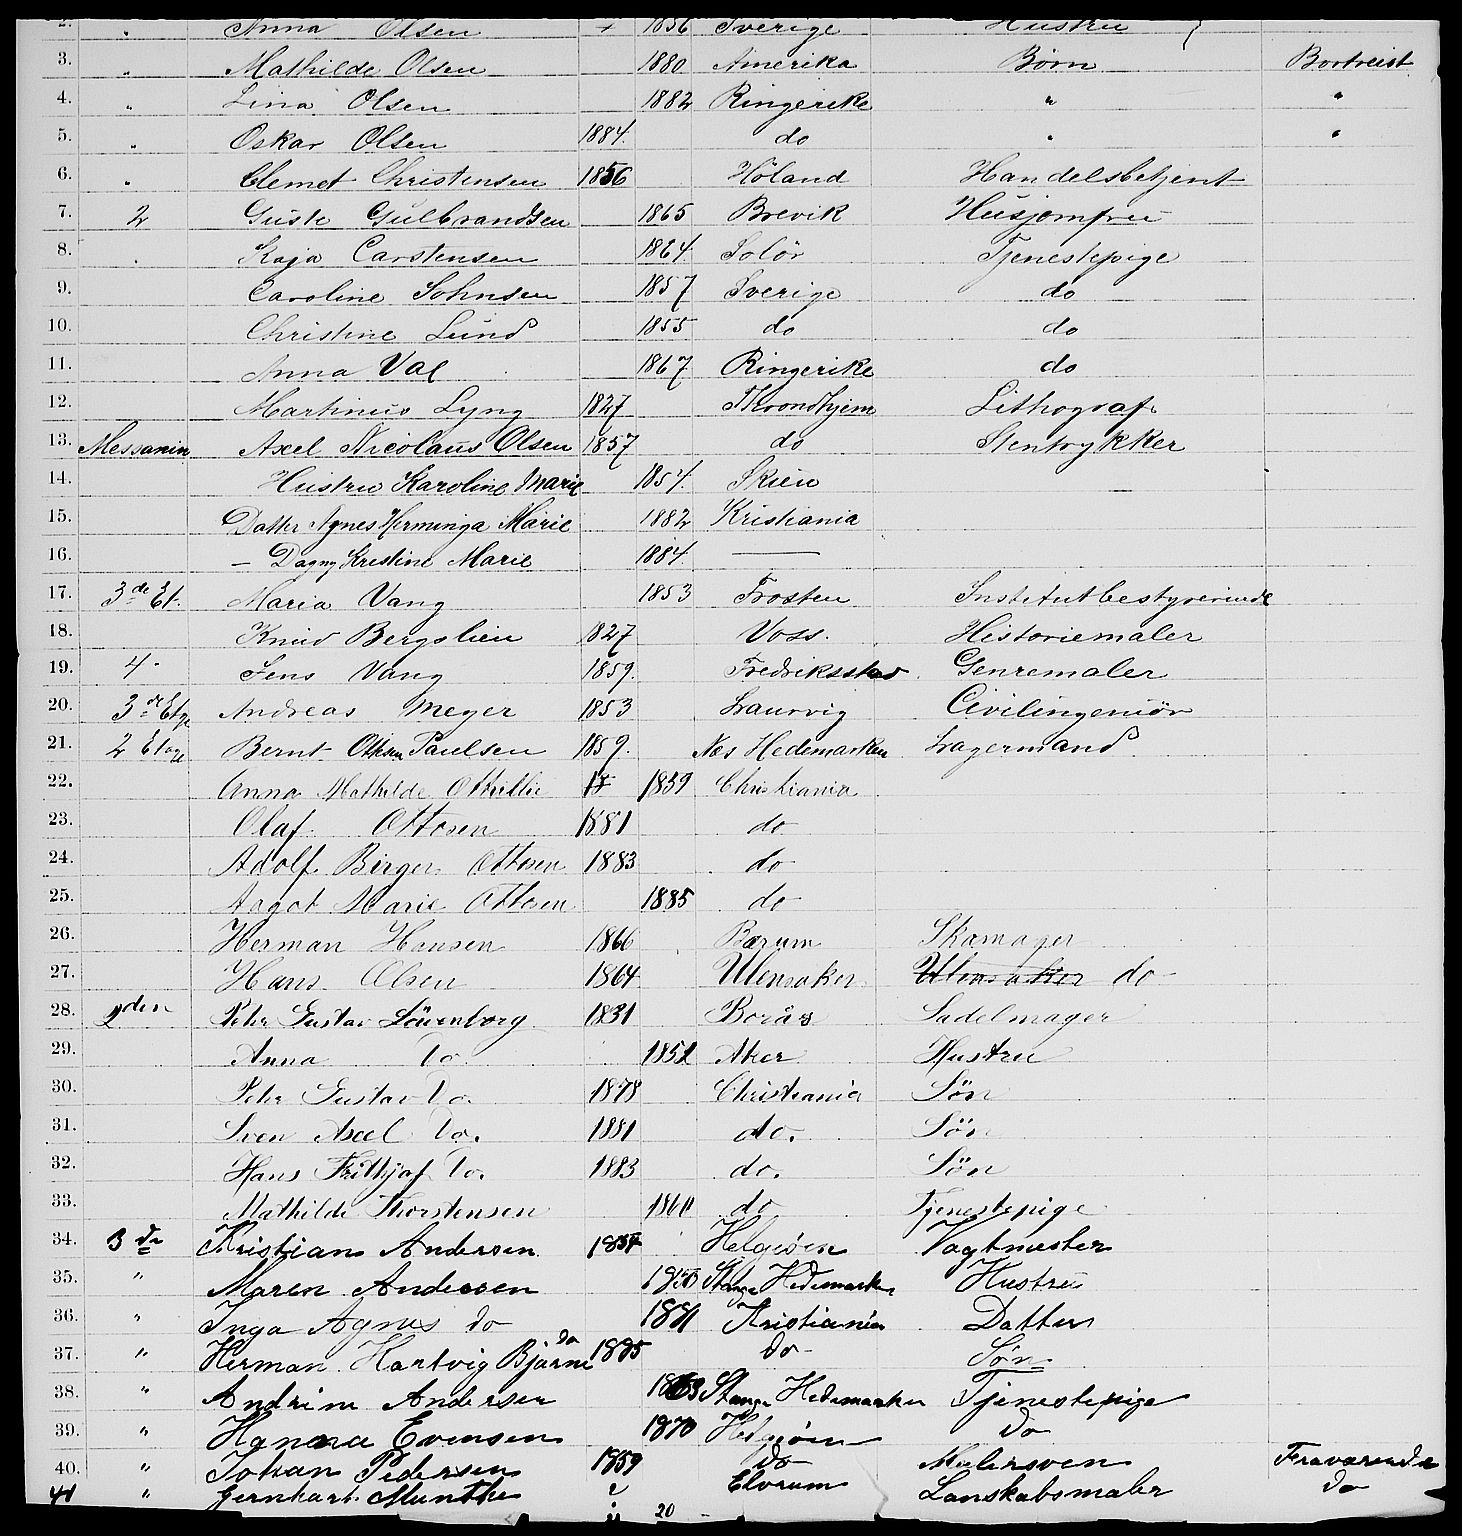 2. " Anna Olsen + 1856 Sverige Hustru
3. " Mathilde Olsen 1880 Amerika Børn Bortreist
4. " Lina Olsen 1882 Ringerike " "
5. " Oskar Olsen 1884. do " "
6. " Clemet Christensen 1856 Höland Handelsbetjent
7. 2 Guste Gulbrandsen 1865 Brevik Husjomfru
8. " Kaja Carstensen 1864. Solör Tjenestepige
9. Caroline Johnsen 1857 Sverige do
10. Christine Lund 1855 do do
11. Anna Val 1867 Ringerike do
12. Martinus Lyng 1827 Throndhjem Lithograf
13. Messanin Axel Nicolaus Olsen 1857 do Stentrykker
14. Hustru Karoline Marie 1854. Skien
15. Datter Agnes Herminga Marie 1882 Kristiania
16. — Dagny Kristine Marie 1884. ——
17. 3de Et. Maria Vang 1853 Frosten Institutbestyrerinde
18. Knud Bergslien 1827 Voss. Historiemaler
19. 4 - Jens Vang 1859. Fredriksstad Genremaler
20. 3de Etge Andreas Meyer 1853 Laurvig Civilingeniör
21. 2 Etage Bernt Ottesen Paulsen 1859. Næs Hedemarken Lagermand
22. Anna Mathilde Ottillie 1859 Christiania
23. Olaf Ottosen 1881 do
24. Adolf Birger Ottosen 1883 do
25. Aagot Marie Ottosen 1885 do
26. Herman Hansen 1866 Bærum Skomager
27. Hans Olsen 1864 Ulensaker Ulensaker do
28. 2den Peter Gustav Löwenborg 1831 Borås Sadelmager
29. Anna Do 1851 Aker Hustru
30. Peter Gustav Do. 1878 Christiania Sön
31. Sven Axel Do. 1881 do. Sön
32. Hans Frithjof Do. 1883 do. Sön
33. Mathilde Thorstensen 1861 do Tjenestepige
34. 3de Kristian Andersen 1857 Helgeöen Vagtmester
35. " Maren Andersen 1850 Stange Hedemarken Hustru
36. " Inga Agnes do 1881 Kristiania Datter
37. " Herman Hartvig Bjarne do 1885 Do Søn
38. " Andrine Andersen 1863 Stange Hedemarken Tjenestepige
39. " Hanna Evensen 1870 Helgeöen Do
40. " Johan Pedersen 1859 Do Malersven Fraværende
41 " Gernhart Munthe ? Elvrum Lanskabsmaler Do
20